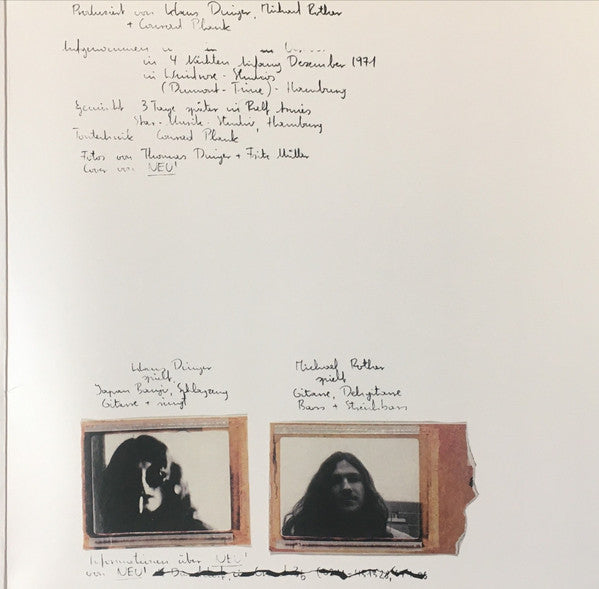 Produziert von Klaus Dinger, Michael Rother
+ Conrad Plank
Aufgenommen
in 4 Nächten Anfang Dezember 1971
in Windrose - Studios
(Dumont - Time) - Hamburg
Gemischt 3 Tage später in Ralf Arnies
Star - Musik - Studio, Hamburg
Tontechnik Conrad Plank
Fotos von Thomas Dinger + Fritz Müller
Cover von NEU!
Klaus Dinger
spielt
Japan Banjo, Schlagzeug
Gitarre + singt
Michael Rother
spielt
Gitarre, Delaygitarre
Bass + Streichbass
Informationen über NEU!
von NEU!